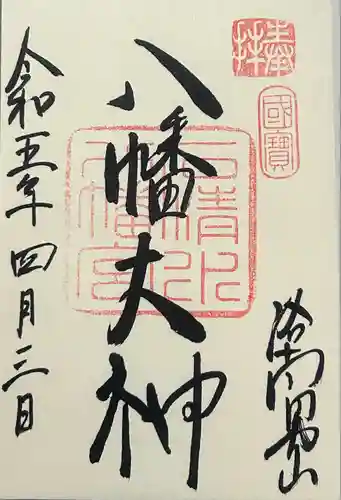 奉拝
國寶
洛南男山
八幡大神
石清水八幡宮
令和五年四月三日